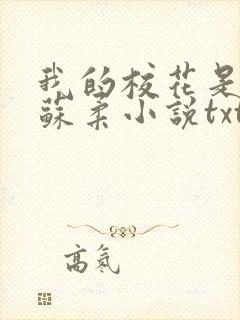 我的校花是
蘇柔小説txt
高氣